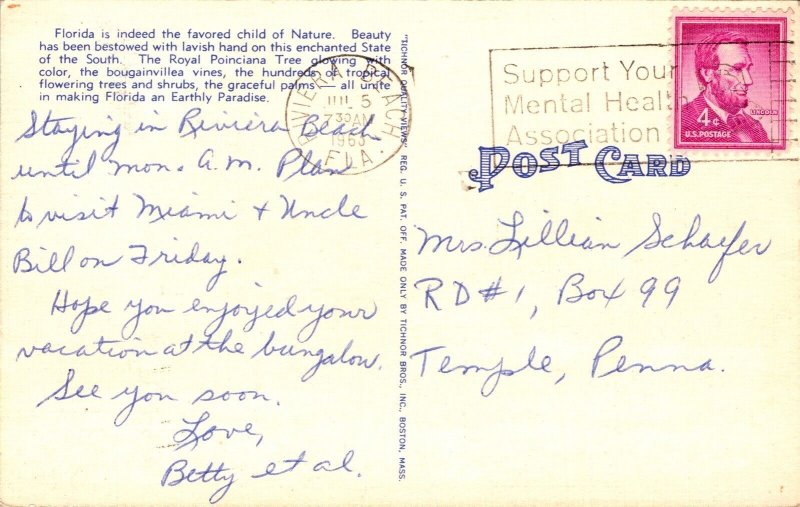 Florida is indeed the favored child of Nature. Beauty
has been bestowed with lavish hand on this enchanted State
of the South. The Royal Poinciana Tree glowing with
color, the bougainvillea vines, the hundreds of tropical
flowering trees and shrubs, the graceful palms — all unite
in making Florida an Earthly Paradise.
Staying in Riviera Beach
until Mon. A.M. Plan
to visit Miami & Uncle
Bill on Friday.
Hope you enjoyed your
vacation at the bungalow.
See you soon.
Love,
Betty et al.
"TICHNOR QUALITY VIEWS" REG. U. S. PAT. OFF. MADE ONLY BY TICHNOR BROS., INC., BOSTON, MASS.
RIVIERA BEACH
JUL 5
730 AM
1963
FLA.
Support Your
Mental Health
Association
LINCOLN
4¢
U.S. POSTAGE
POST CARD
Mrs. Lillian Schaefer
RD #1, Box 99
Temple, Penna.